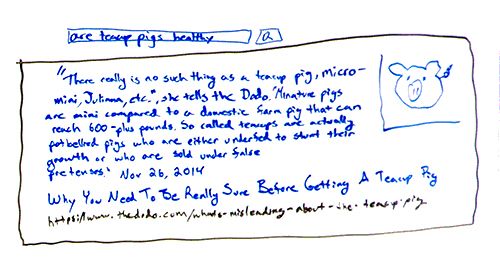 are teacup pigs healthy
"There really is no such thing as a teacup pig, micro-
mini, Juliana, etc.", she tells the Dodo. "Minature pigs
are mini compared to a domestic farm pig that can
reach 600-plus pounds. So called teacups are actually
potbellied pigs who are either underfed to stunt their
growth or who are sold under false
pretenses." Nov 26, 2014
Why You Need To Be Really Sure Before Getting A Teacup Pig
https://www.thedodo.com/whats-misleading-about-the-teacup-pig